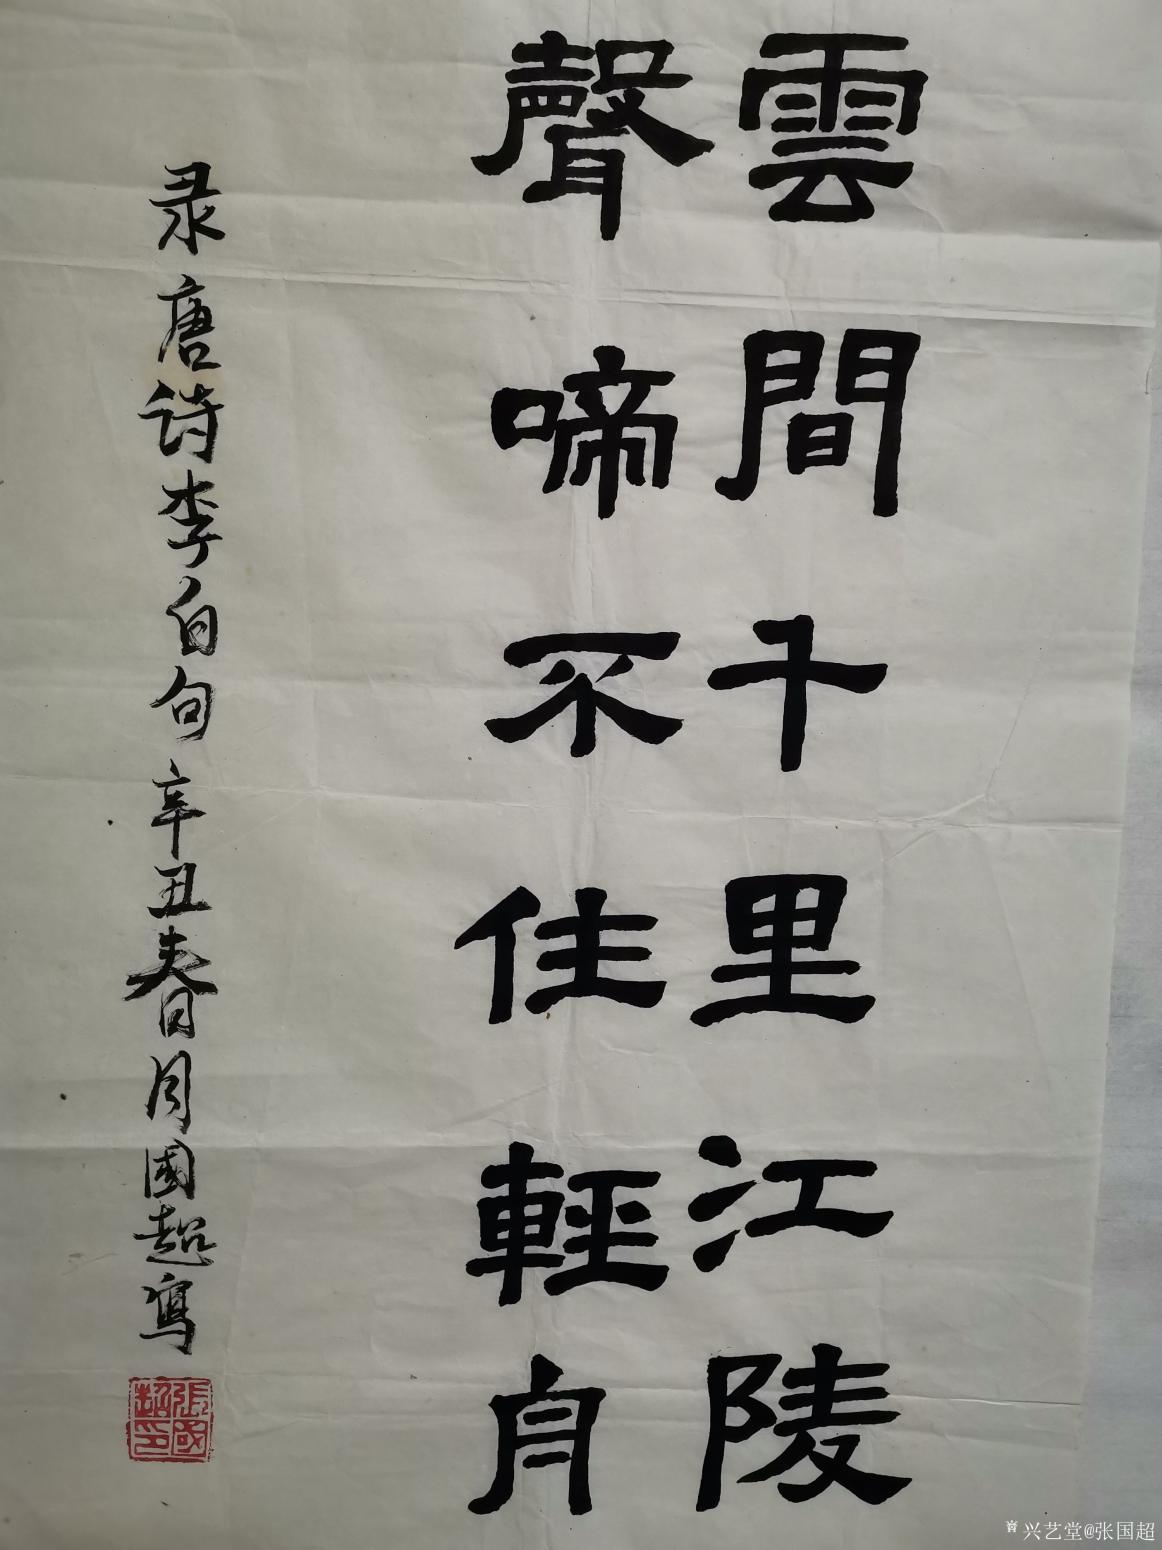 雲間千里江陵
聲啼不住輕舟
录唐诗李白句辛丑春月國超寫
張國超印
兴艺堂@张国超